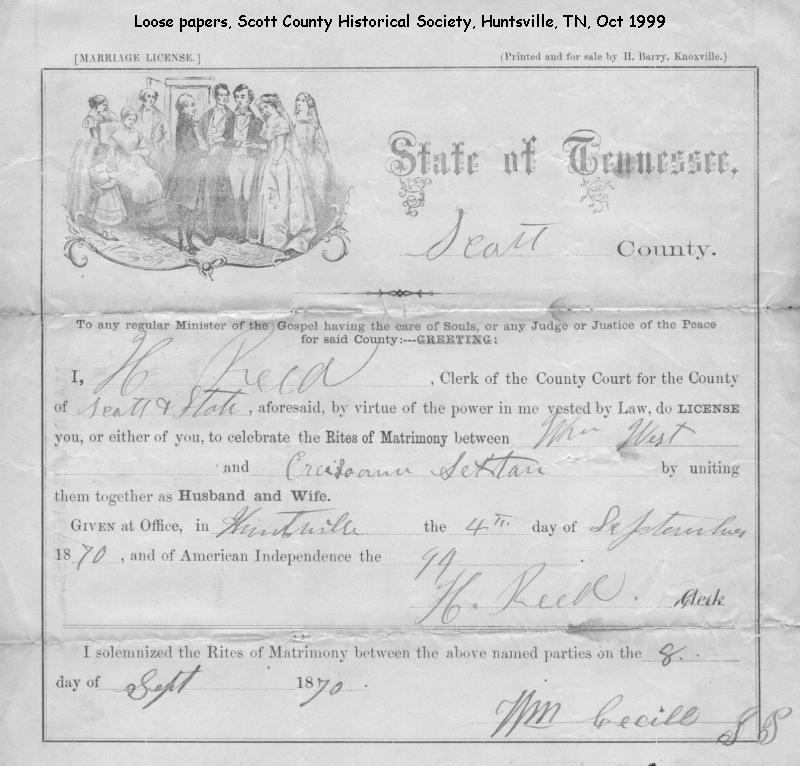 Loose papers, Scott County Historical Society, Huntsville, TN, Oct 1999
[MARRIAGE LICENSE.] (Printed and for sale by H. Barry, Knoxville.)
State of Tennessee,
Scott County.
To any regular Minister of the Gospel having the care of Souls, or any Judge or Justice of the Peace
for said County:---GREETING:
I, H Reed, Clerk of the County Court for the County
of Scott & State, aforesaid, by virtue of the power in me vested by Law, do LICENSE
you, or either of you, to celebrate the Rites of Matrimony between Wm West
and Sextan by uniting
them together as Husband and Wife.
GIVEN at Office, in Huntsville the 4th day of September
1870, and of American Independence the 94
H. Reed. Clerk
I solemnized the Rites of Matrimony between the above named parties on the 8.
day of Sept 1870.
Wm Cecill